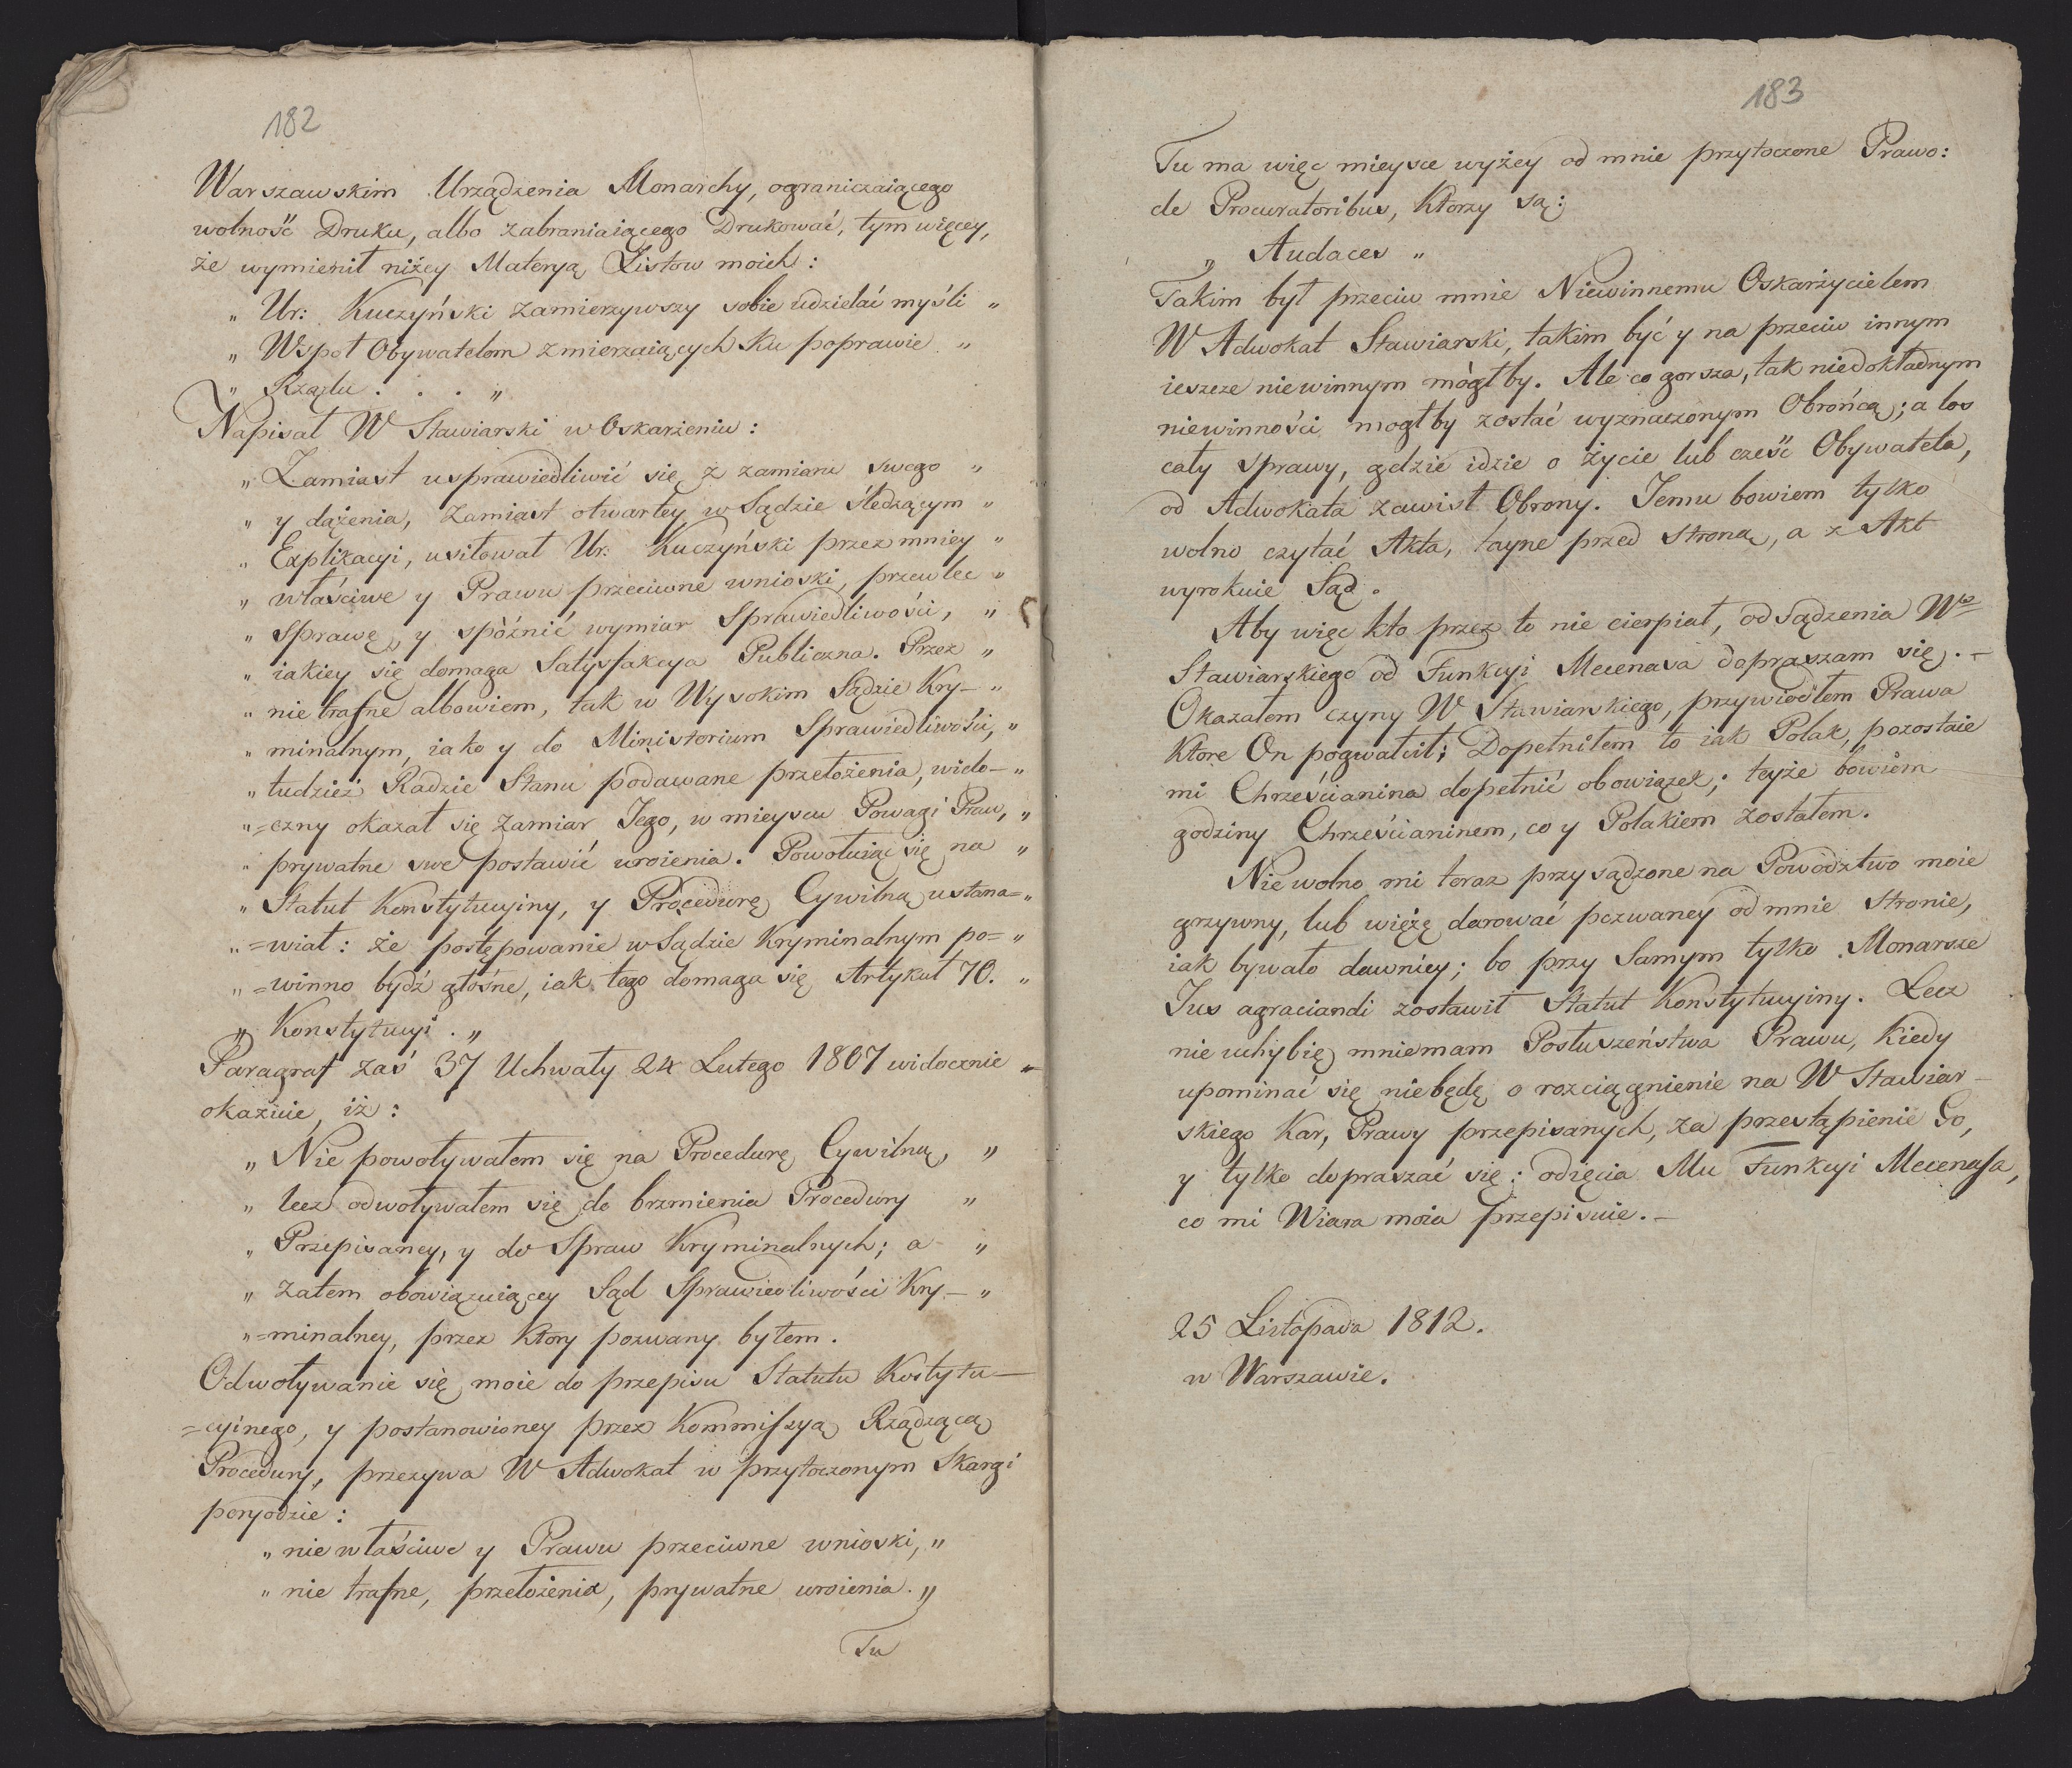 182
Warszawskim Urządzenia Monarchy, ograniczaiącego
wolność Druku, albo zabraniaiącego Drukować, tym więcey,
że wymienił niżey Materyą Listow moich:
„ Ur: Kuczyński zamierzywszy sobie udzielać myśli „
„ Wspoł Obywatelom zmierzaiących ku poprawie „
„ Rządu . . . „
Napisał W Sławiarski w Oskarżeniu:
„ Zamiast usprawiedliwić się z zamiaru swego „
„ y dążenia, zamiast otwartey w Sądzie śledzącym „
„ Explikacyi, usiłował Ur: Kuczyński przez mniey „
„ właściwe y Prawu przeciwne wnioski, przewlec „
„ Sprawę, y spòźnić wymiar Sprawiedliwości, „
„ iakiey się domaga Satysfakcya Publiczna. Przez „
„ nie trafne albowiem, tak w Wysokim Sądzie Kry- „
„ minalnym, iako y do Ministorium Sprawiedliwości, „
„ tudzież Radzie Stanu podawane przełożenia, wido- „
„ =czny okazał się zamiar Jego, w mieyscu Powagi Praw, „
„ prywatne swe postawić uroienia. Powołuiąc się na „
„ Statut Konstytucyiny, y Procedurę Cywilną ustana= „
„ =wiał: że postępowanie w Sądzie Kryminalnym po= „
„ =winno bydź głośne, iak tego domaga się Artykuł 70. „
„ Konstytucyi. „
Paragraf zaś 37 Uchwały 24 Lutego 1807 widocznie „
okazuie, iż:
„ Nie powoływałem się na Procedurę Cywilną, „
„ lecz odwoływałem się do brzmienia Procedury „
„ Przepisaney, y do Spraw Kryminalnych; a „
„ zatem obowiązuiącey Sąd Sprawiedliwości Kry- „
„ =minalney, przez Ktory pozwany byłem.
Odwoływanie się moie do przepisu Statutu Kostytu-
=cyinego, y postanowioney przez Kommiſsyą Rządzącą
Procedury, przezywa W Adwokat w przytoczonym Skargi
peryodzie:
„ nie właściwe y Prawu przeciwne wnioski, „
„ nie trafne, przełożenia, prywatne uroienia. „
Tu
183
Tu ma więc mieysce wyżey od mnie przytoczone Prawo:
de Procuratoribus, Ktorzy są:
„ Audaces „
Takim był przeciw mnie Niewinnemu Oskarżycielem
W Adwokat Sławiarski, takim być y na przeciw innym
ieszcze niewinnym mògłby. Ale co gorsza, tak niedokładnym
niewinności mogłby zostać wyznaczonym Obrońcą; a los
cały sprawy, gdzie idzie o życie lub cześć Obywatela,
od Adwokata zawisł Obrony. Jemu bowiem tylko
wolno czytać Akta, tayne przed stroną, a z Akt
wyrokuie Sąd.
Aby więc kto przez to nie cierpiał, odsądzenia Wo
Sławiarskiego od Funkcyi Mecenasa dopraszam się. -
Okazałem czyny W Sławiarskiego, przywiodłem Prawa
Ktore On pogwałcił; Dopełniłem to iak Polak, pozostaie
mi Chrześcianina dopełnić obowiązek; teyże bowiem
godziny Chrześcianinem, co y Polakiem zostałem.
Nie wolno mi teraz przysądzone na Powodztwo moie
grzywny, lub więżę darować pozwaney od mnie stronie,
iak bywało dawniey; bo przy Samym tylko Monarsze
Jus agraciandi zostawił Statut Konstytucyiny. Lecz
nie uchybię mniemam Posłuszeństwa Prawu, Kiedy
upominać się nie będę o rozciągnienie na W Sławiar-
skiego Kar, Prawy przepisanych, za przestąpienie Go,
y tylko dopraszać się: odięcia Mu Funkcyi Mecenaſa,
co mi Wiara moia przepisuie. -
25 Listopada 1812.
w Warszawie.